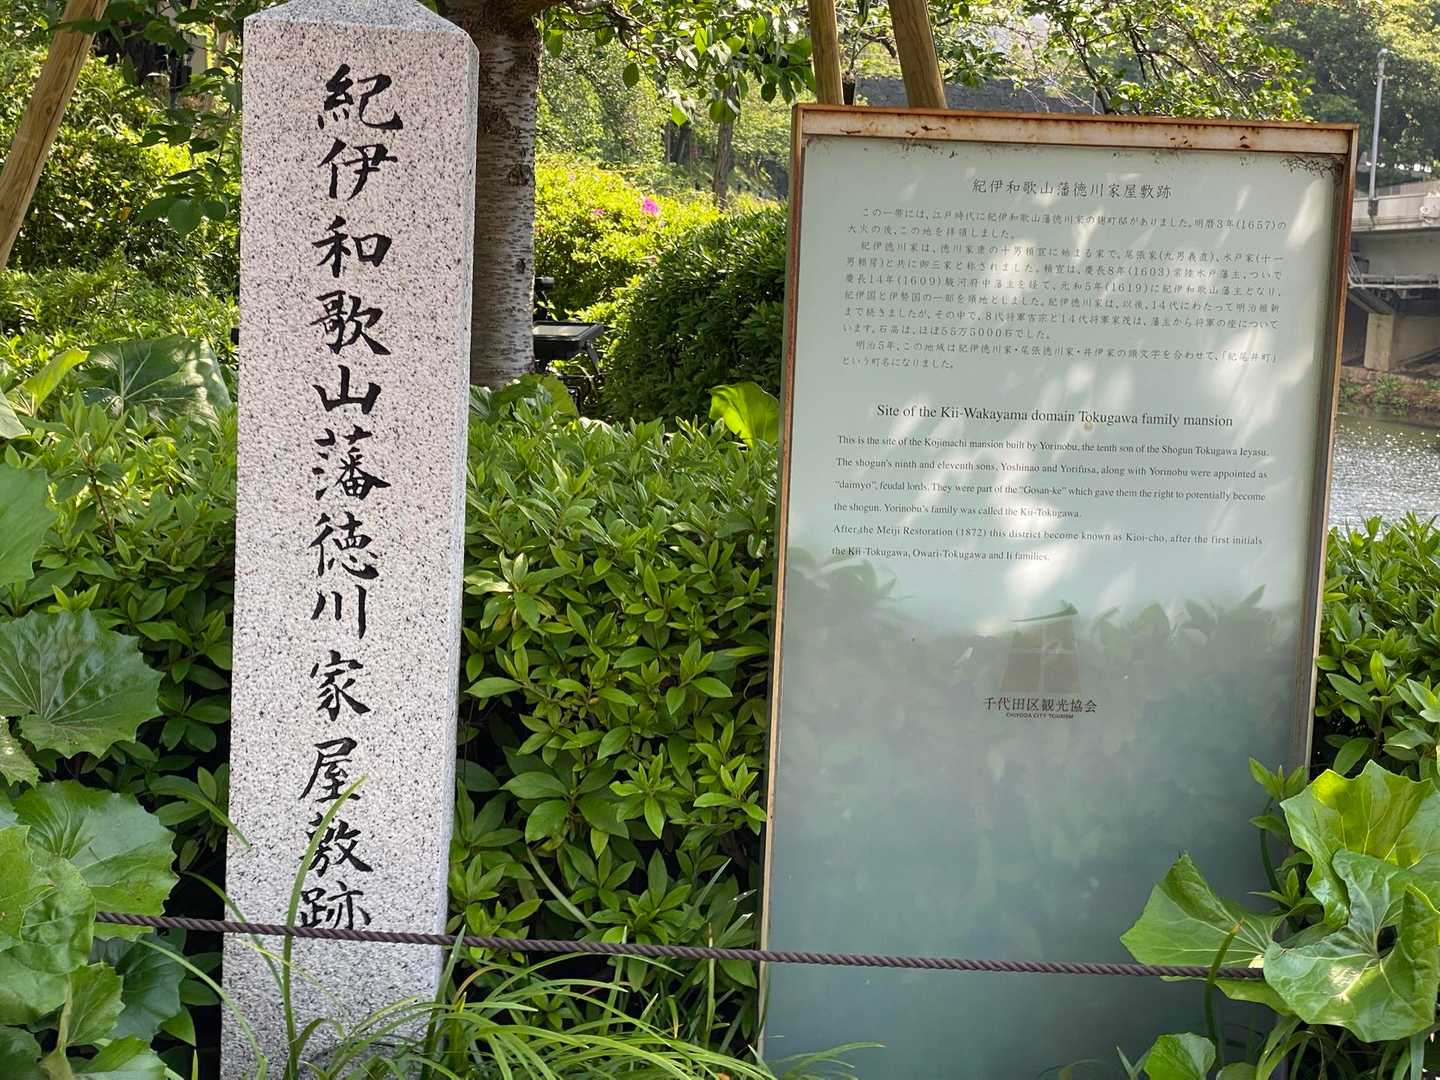 紀伊和歌山藩徳川家屋敷跡
紀伊和歌山藩徳川家屋敷跡
この一帯には、江戸時代に紀伊和歌山藩徳川家の麹町邸がありました。明暦3年(1657)の
大火の後、この地を拝領しました。
紀伊徳川家は、徳川家康の十男頼宣に始まる家で、尾張家(九男義直)、水戸家(十一
男頼房)と共に御三家と称されました。頼宣は、慶長8年(1603)常陸水戸藩主、ついで
慶長14年(1609)駿河府中藩主を経て、元和5年(1619)に紀伊和歌山藩主となり、
紀伊国と伊勢国の一部を領地としました。紀伊徳川家は、以後、14代にわたって明治維新
まで続きましたが、その中で、8代将軍吉宗と14代将軍家茂は、藩主から将軍の座について
います。石高は、ほぼ55万5000石でした。
明治5年、この地域は紀伊徳川家・尾張徳川家・井伊家の頭文字を合わせて、「紀尾井町」
という町名になりました。
Site of the Kii-Wakayama domain Tokugawa family mansion
This is the site of the Kojimachi mansion built by Yorinobu, the tenth son of the Shogun Tokugawa Ieyasu.
The shogun's ninth and eleventh sons, Yoshinao and Yorifusa, along with Yorinobu were appointed as
"daimyo", feudal lords. They were part of the "Gosan-ke" which gave them the right to potentially become
the shogun. Yorinobu's family was called the Kii-Tokugawa.
After the Meiji Restoration (1872) this district become known as Kioi-cho, after the first initials
the Kii-Tokugawa, Owari-Tokugawa and Ii families.
千代田区観光協会
CHIYODA CITY TOURISM